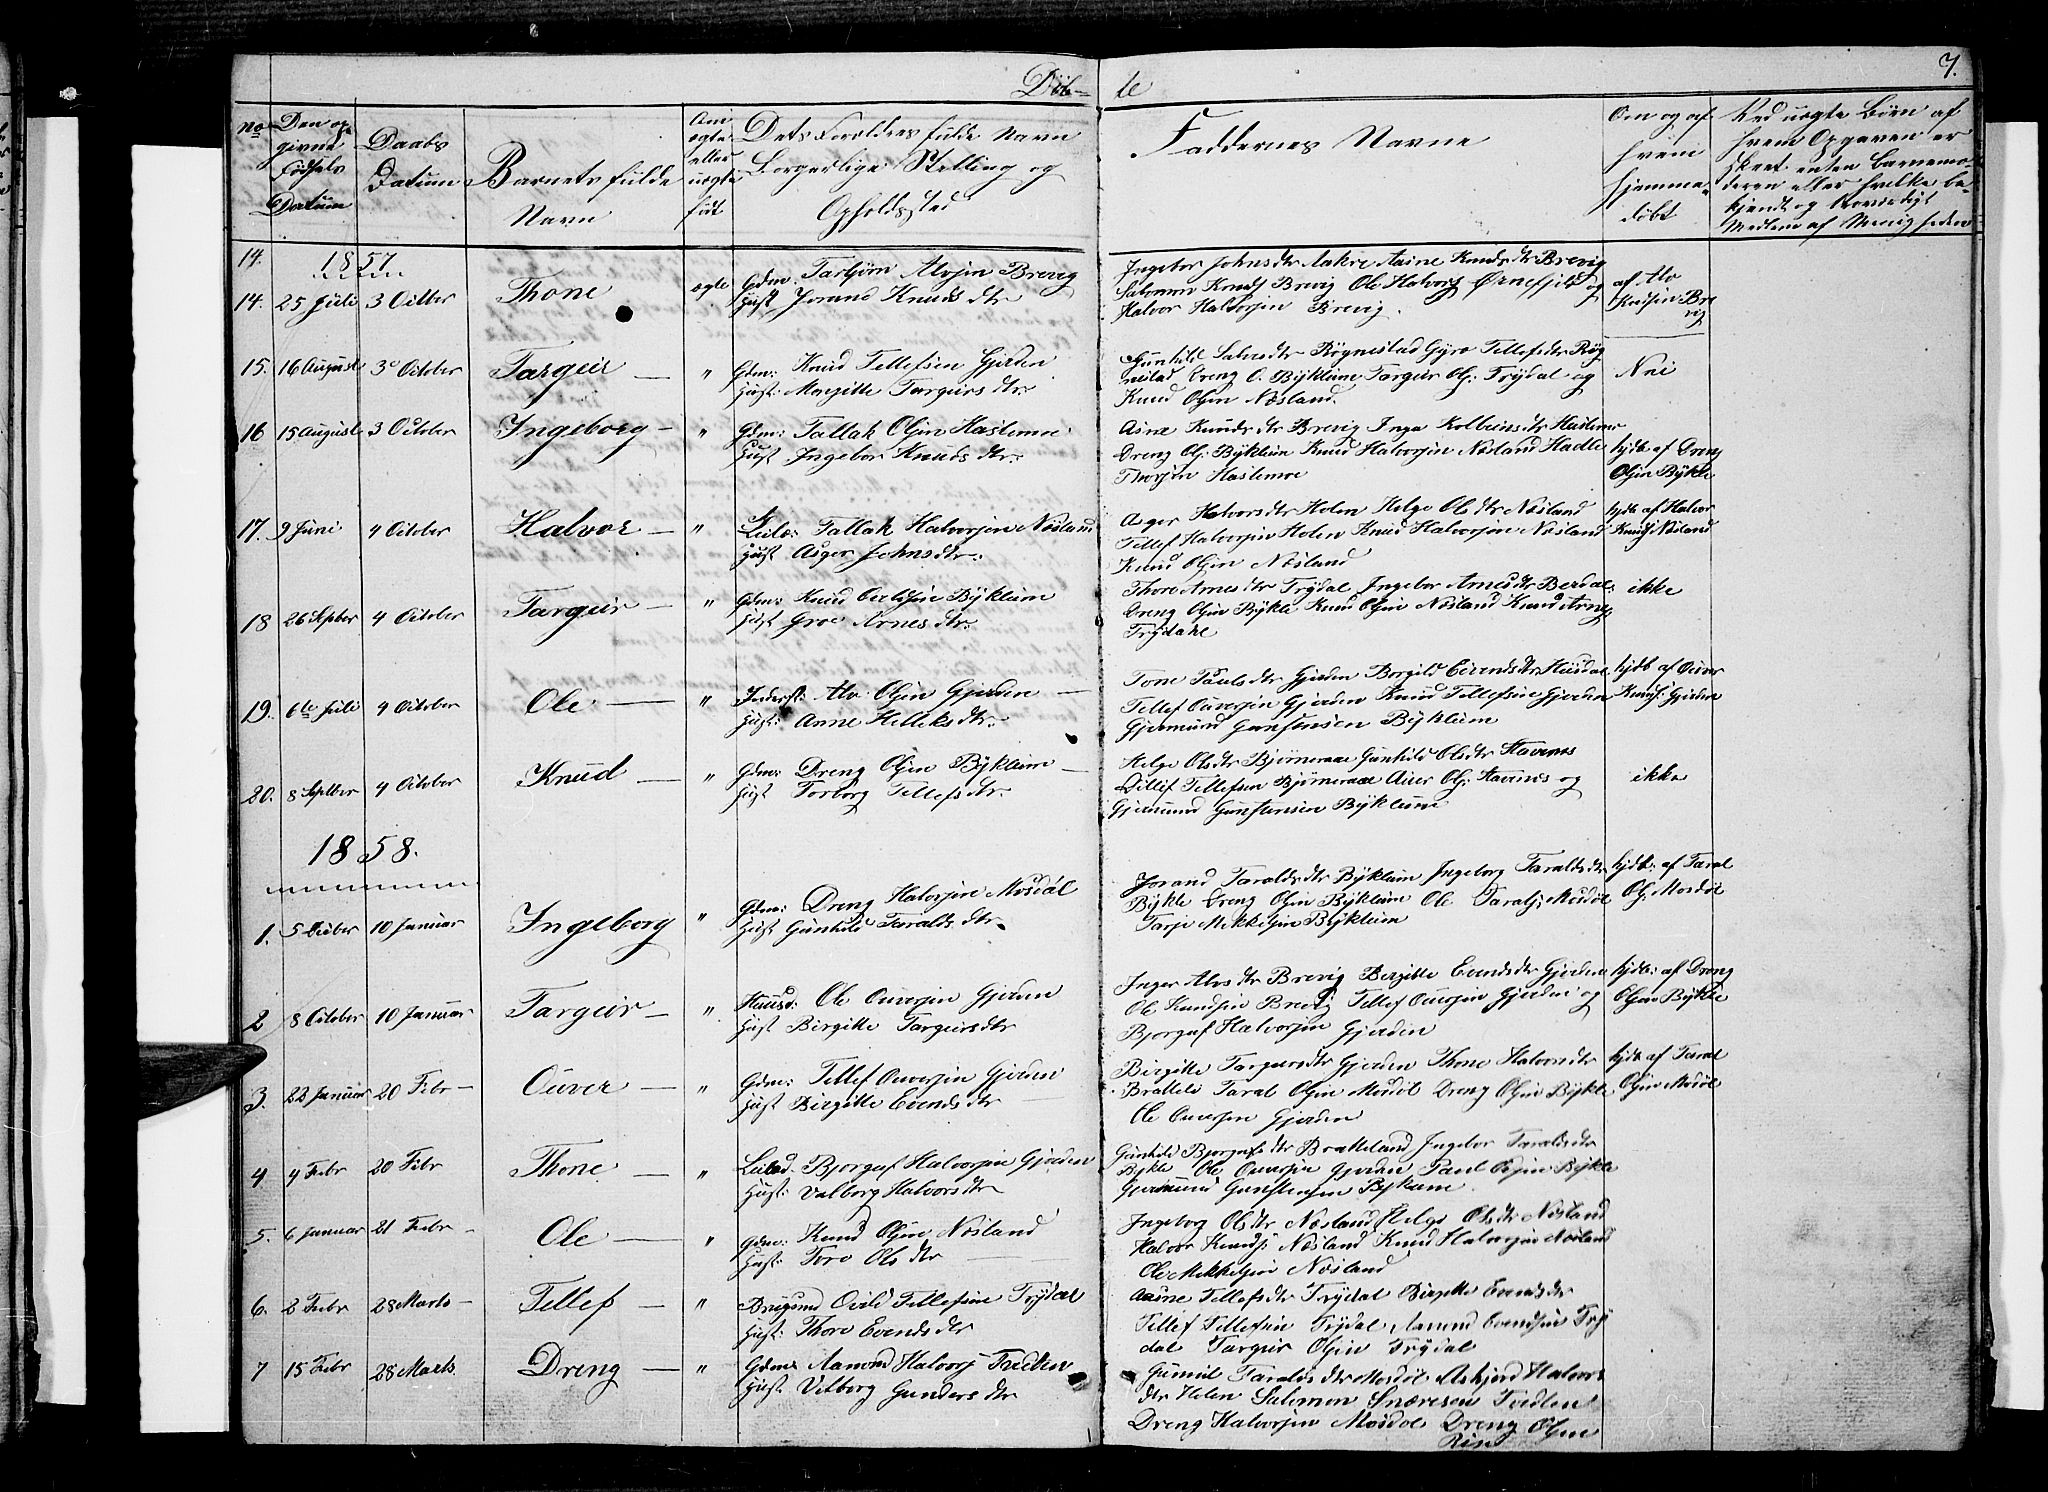 Döb- te
7.
No
Den op
givne
Födsels
Datum
Daabs
Datum
Barnets fulde
Navn
Om
ægte
eller
uægte
födt
Dets Forældres fulde Navn
Borgerlige Stelling og
Opholdssted
Faddernes Navne
Om og af
hvem
hjemme-
döbt
Ved uægte Börn af
hvem Opgaven er
skeet enten Barnemo-
deren eller hvilke be-
kjendt og troværdigt
Medlem af Menigheden
14.
1857
14. 25 Juli 3 Octber Thone ægte Gdm. Tarbjörn Alvsen Brevig
Hust Jorand Knuds dtr
Ingebor Johnsdtr Aakre Aasne Knuds dtr Brevig
Salomon Knuds Brevig Ole Halvors Örnefjeld og
Halvor Halvorsen Brevig.
af Alv
Knusen Bre
vig
15. 16 August 3 October Targeir — " Gdm: Knud Tellefsen Gjerden
Hust: Margitte Targiers dtr.
Gunhild Salvesdtr Rögnestad Gyro Tellefsdtr Rög
nestad Dreng O. Bÿkleum Targeir Ols: Trydal og
Knud Olsen Næsland.
Nei
16 15 August 3 October Ingeborg — " Gdm: Tallak Olsen Haslemoe
Hust Ingebor Knuds dtr.
Asne Knuds dtr Brevig Inga Kolbeins dtr Haslemo
Dreng Ols: Bÿkleim Knud Halvorsen Næsland Hadle
Thorsen Haslemoe
hjdt af Dreng
Olsen Bykle
17. 9 Juni 4 October Halvor — " Leilæ: Tallak Halvorsen Næsland
Hust Asger Johnsdtr:
Asger Halvorsdtr Holen Helge Olsdtr Næsland
Tellef Halvorsen Holen Knud Halvorsen Næsland
Knud Olsen Næsland
hjdt af Halvor
Knuds Næsland
18 26 Sepber 4 October Targeir — " Gdm: Knud Bÿkleum
Hust Groe Arnesdtr.
Thore Arnes dtr Trydal Ingebor Arnesdtr Berdal.
Dreng Olsen Bykle Knud Olsen Næsland Knud Arnes
Trydahl
ikke
19. 6te Juli 4 October Ole — " Inderst: Alv Olsen Gjerden —
Hust: Anne Helleks dtr.
Tone Pauls dtr Gjerden Borgild Eivends dtr Husdal
Tellef Ouversen Gjerden Knud Tellefsen Gjerden
Gjermund Gunstensen Bykleum
hjdt af Ouver
Knuds: Gjerden
20. 8 Septber 4 October Knud — " Gdm: Dreng Olsen Bykleum —
Hust Torborg Tellefsdtr.
Helge Olsdtr Björneraa Gunhild Olsdtr Stavenes
Tellef Tellefsen Bjørneraae Ols: Stavenes og
Gjermund Gunstensen Bykleum
ikke
1858.
1. 5 Decber 10 Januar Ingeborg " Gdm: Dreng Halvorsen Mosdal
Hust Gunhild Taralds dtr.
Jorand Taralds dtr Bykleim Ingeborg Taralds dtr
Bykle Dreng Olsen Bÿkleim Ole Tarals: Mosdöl
Tarje Mikkelsen Bykleim
hjdt: af Taral
Ols Mosdöl
2 8 October 10 Januar Targeir — " Huusd: Ole Ouversen Gjerden
Hust Birgitte Targiersdtr
Inger Alvs dtr Brevig Bergitte Evendsdtr Gjerden
Ole Knudsen Brevig Tellef Ouversen Gjerden og
Bjorguf Halvorsen Gjerden
hjdt: af Dreng
Olsen Bykle
3. 22 Januar 20 Febr — Ouver — " Gdm: Tellef Ouversen Gjerden
Hust Birgitte Evends dtr
Birgitte Targiersdtr Gjerden Thone Halvorsdtr
Bratteli Taral Olsen Mosdöl Dreng Olsen Bykle
Ole Ouversen Gjerden
hjdt af Taral
Olsen Mosdöl
4 4 Febr 20 Febr Thone — " Leilæd. Bjorguf Halvorsen Gjerden
Hust: Valborg Halvors dtr
Gunhild Bjorgufs dtr Bratteland Ingebor Taralds dtr
Bykle Ole Ouversen Gjerden Paul Olsen Bykle
Gjermund Gunstensen Bykleum.
5. 6 Januar 21 Febr — Ole — " Gdm: Knud Olsen Næsland
Hust: Toro Ols dtr
Ingeborg Olsdtr Næsland Helge Olsdtr Næsland
Halvor Knuds: Næsland Knud Halvorsen Næsland
Ole Mikkelsen Næsland
6. 2 Febr 28 Marts — Tellef — " Brugsmd Tellefsen Trydal
Hust: Thore Evendsdtr
Aasne Tellefsdtr Trydal Birgitte Evends dtr
Tellef Tellefsen Trydal Aamund Evendsen Try
dal Targeir Olsen Trydal
7 15 Febr 28 Marts. Dreng — " Gdm: Aamond Halvors
Hust: Valborg Gunders dtr
Gunnil Taralds dtr Mosdöl Halvors
dtr Holen Salomon
Dreng Halvorsen Mosdöl Dreng Olsen